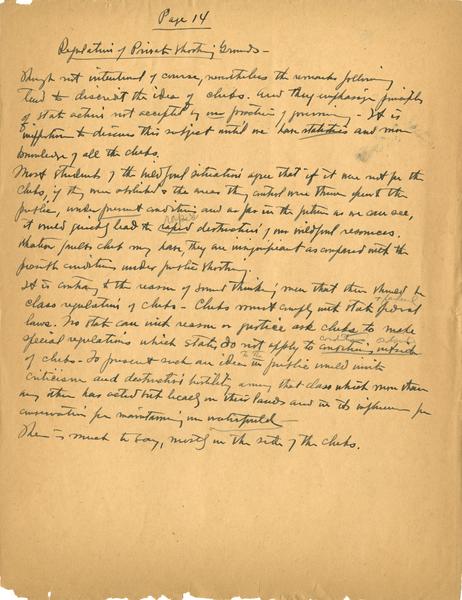 Page 14
Regulation of Private Shooting Grounds -
Though not intentional of course, nonetheless the remarks following
tend to discredit the idea of clubs. And they emphasize principles
of state action not accepted by our practice of government - It is
to discuss this subject until we have statistics and more
knowledge of all the clubs.
Most students of the wildfowl situation agree that if it were not for the
clubs, if they were abolished & the areas they control were thrown open to the
public, under present conditions and as far in the future as we can see,
rapid
it would quickly lead to rapid destruction of our wildfowl resources.
Whatever faults clubs may have they are insignificant as compared with the
present conditions under public shooting.
It is contrary to the reason of sound thinking men that there should be
class regulation of clubs - Clubs must comply with state & federal
laws. No state can with reason or justice ask clubs to make
conditions
special regulations which state do not apply to outside
of clubs - To present such an idea to the public would invite
criticism and destructive hostility among that class which more than
any other has acted in their lands and in its influence for
conservation for maintaining our waterfowl.
There is much to say, mostly on the side of the clubs.